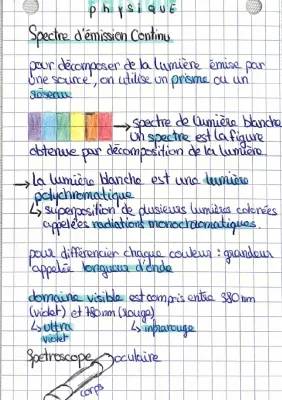 PhYSiQUE
Spectre d'émission Continu
pour décomposer de la lumière émise par
une source, on utilise un prisme ou un
réseau
→ spectre de lumière blanche
Un spectre est la figure
obtenue par décomposition de la lumière
→ la lumière blanche est une lumière
polychromatique
↳ superposition de plusieurs lumières colorées
appelées radiations monochromatiques.
pour différencier chaque couleur : grandeur
appelée longueur d'onde
domaine visible est compris entre 380 nm
(violet) et 780 nm (rouge)
↳ ultra violet ↳ infrarouge
Spetroscope oculaire
corps